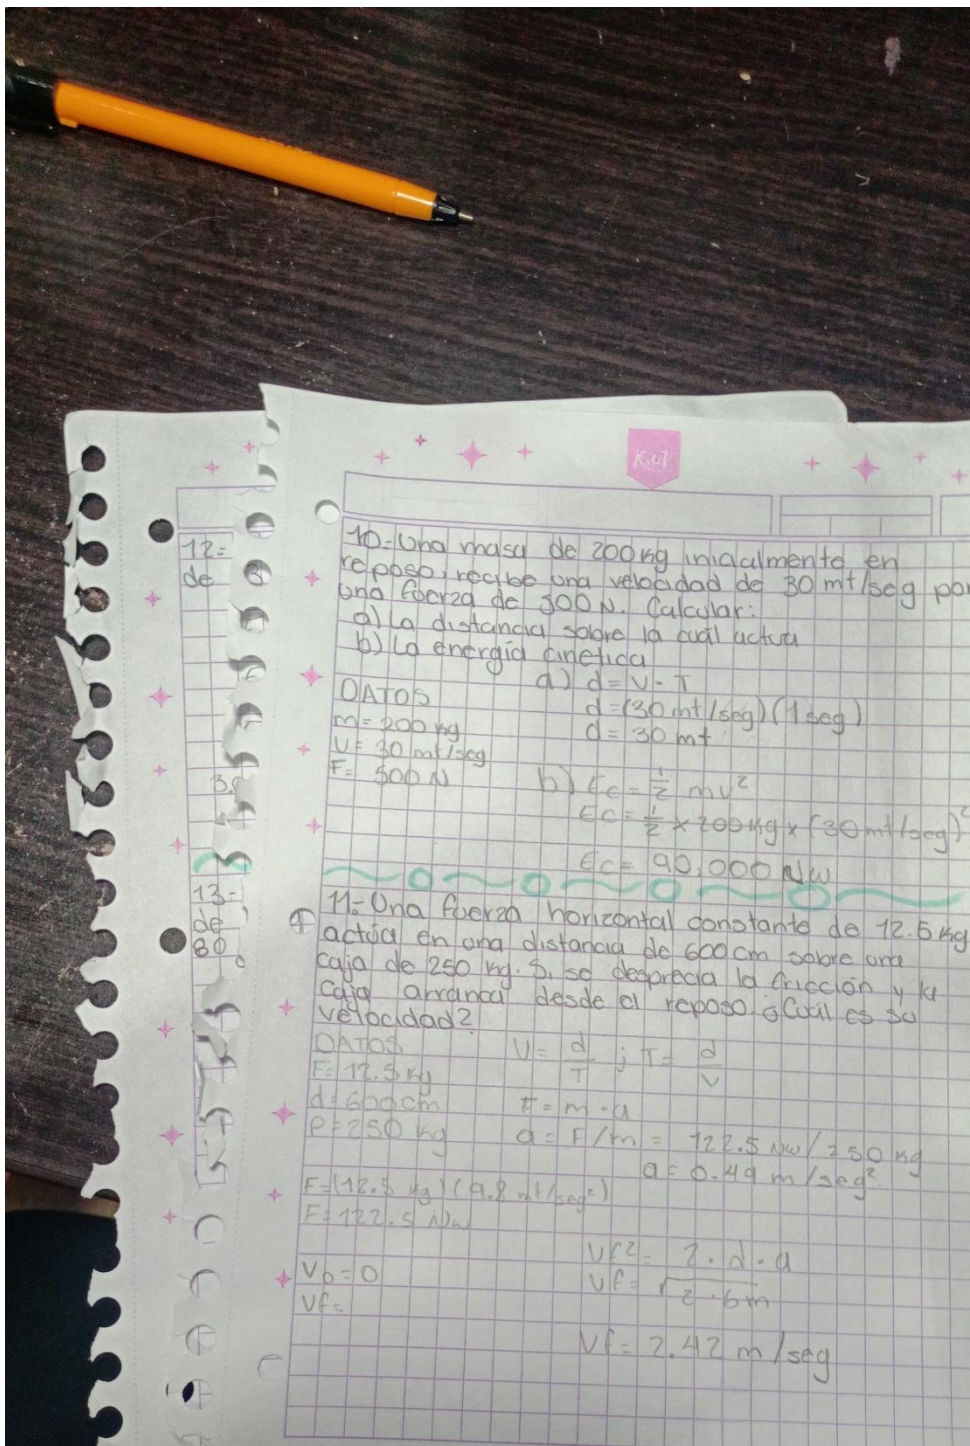 Kiut
12-
de
3.
13-
de
80
10- Una masa de 200 kg inicialmente en
reposo, recibe una velocidad de 30 mt/seg por
una fuerza de 500 N. Calcular:
a) La distancia sobre la cual actua
b) La energía cinetica
DATOS
m= 200 kg
V= 30 mt/seg
F= 500 N
a) d= V·T
d=(30 mt/seg)(1 seg)
d= 30 mt
b) Ec= 1/2 mv²
Ec= 1/2 × 200 kg × (30 mt/seg)²
Ec= 90,000 Nw
11- Una fuerza horizontal constante de 12.5 kg
actúa en una distancia de 600 cm sobre una
caja de 250 kg. Si se desprecia la fricción y la
caja arranca desde el reposo ¿Cuál es su
velocidad?
DATOS
F= 12.5 kg
d= 600 cm
P= 250 kg
F=(12.5 kg)(9.8 mt/seg²)
F= 122.5 Nw
Vo = 0
Vf=
V= d/T ; T= d/V
F= m·a
a= F/m = 122.5 Nw/250 kg
a= 0.49 m/seg²
Vf²= 2·d·a
Vf= √2·6m
Vf= 2.42 m/seg